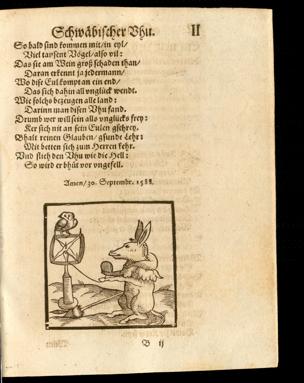 Schwäbischer Vhu.
II
So bald sind kommen mit/in eyl/
Viel tausent Vögel/also vil:
Das sie am Wein groß schaden than/
Daran erkennt ja jedermann/
Wo dise Eul kompt an ein end/
Das sich dahin all vnglück wendt.
Wie solchs bezeugen alle land:
Darinn man disen Vhu fand.
Drumb wer will sein alls vnglücks frey:
Ker sich nit an sein Eulen gschrey.
Bhalt reinen Glauben/gsunde Lehr:
Mit betten sich zum Herren kehr.
Vnd flieh den Vhu wie die Hell:
So wird er bhüt vor vngefell.
Amen/30. Septembr. 1588.
B ij